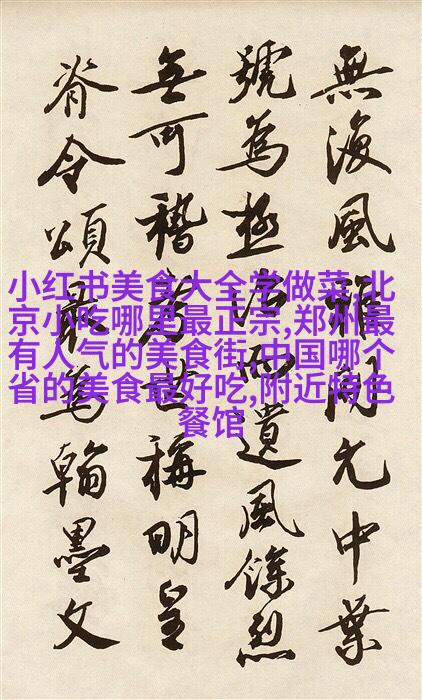 無復風雅開元中葉
號為極治而遺風餘烈
無可稽考世稱明皇
脊令頌最為翰墨文
小红书美食大全学做菜,北
京小吃哪里最正宗,郑州最
有人气的美食街,中国哪个
省的美食最好吃,附近特色
餐馆